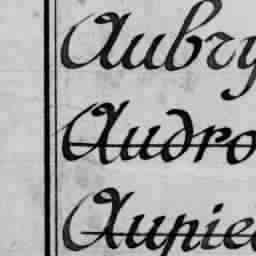 Aubry
Audro
Aupie